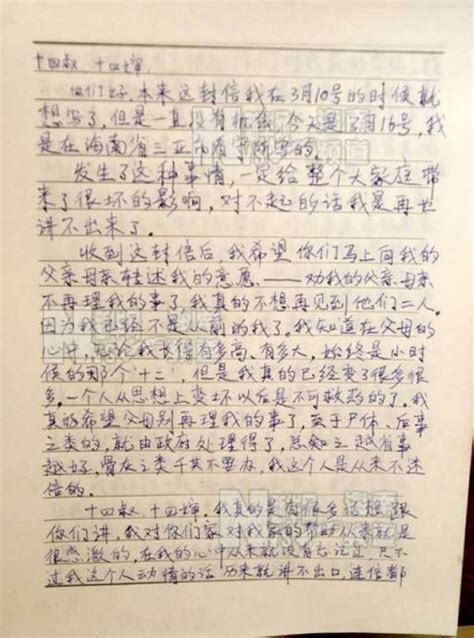 十四叔、十四婶:
你们好,本来这封信我在3月10号的时候就
想写了,但是一直没有机会,今天是3月16号,我
是在海南省三亚市看守所写的。
发生了这种事情,一定给整个大家庭带
来了很坏的影响,对不起的话我是再也
讲不出来了。
收到这封信后,我希望你们马上向我的
父亲母亲转述我的意愿——劝我的父亲、母亲
不再理我的事了,我真的不想再见到他们二人。
因为我已经不是从前的我了。我知道在父母的
心中,无论我长得有多高、有多大,始终是小时
候的那个"十二",但是我真的已经变了很多很
多,一个人从思想上变坏以后是不可救药的了,我
真的希望父母别再理我的事了,至于尸体、后事
之类的,就由政府处理得了,总知之越省事
越好,骨灰之类千万不要办,我这个人是从来不迷
信的。
十四叔、十四婶,我真的是有很多话想跟
你们讲,我对你们家对我家的帮助从来就是
很感激的,在我的心中从来就没有忘记过,只不
过我这个人动情的话历来就讲不出口,连信都